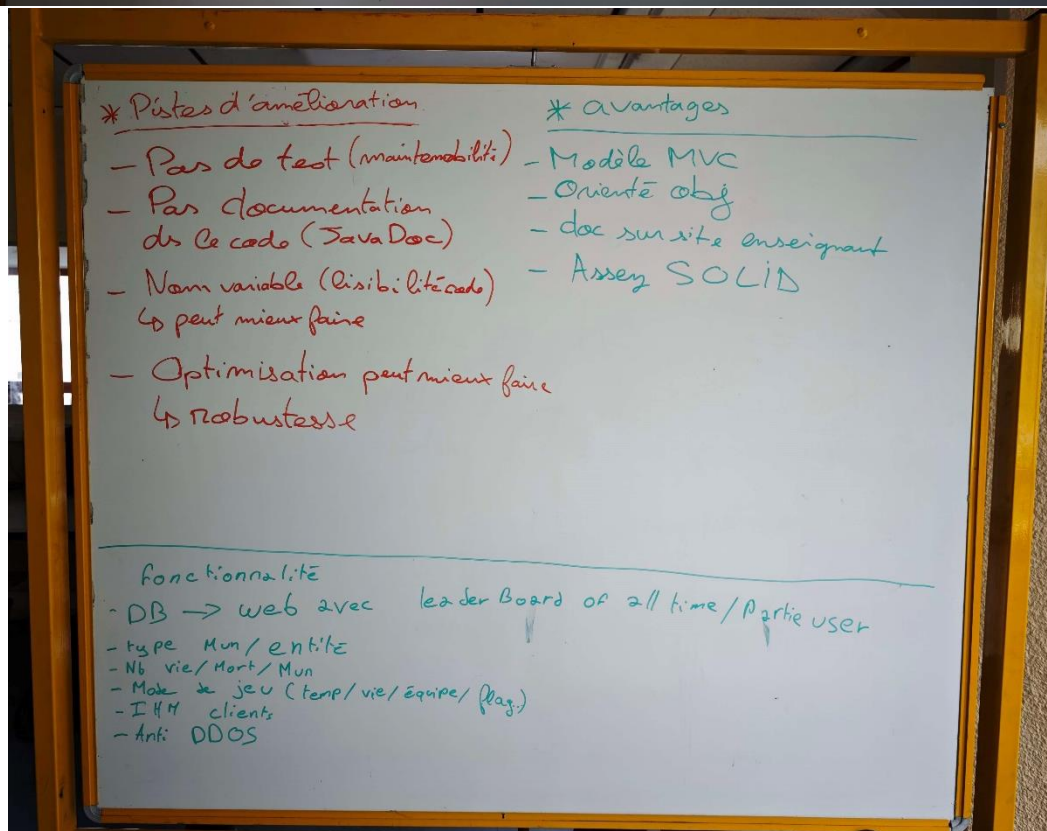 * Pistes d'amélioration
- Pas de test (maintenabilité)
- Pas documentation
ds le code (JavaDoc)
- Nom variable (lisibilité code)
↳ peut mieux faire
- Optimisation peut mieux faire
↳ robustesse
* avantages
- Modèle MVC
- Orienté obj
- doc sur site enseignant
- Assez SOLID
fonctionnalité
- DB -> web avec leaderBoard of all time/Partie user
- type Mun/entité
- Nb vie/Mort/Mun
- Mode de jeu (temp/vie/équipe/flag.)
- IHM clients
- Anti DDOS